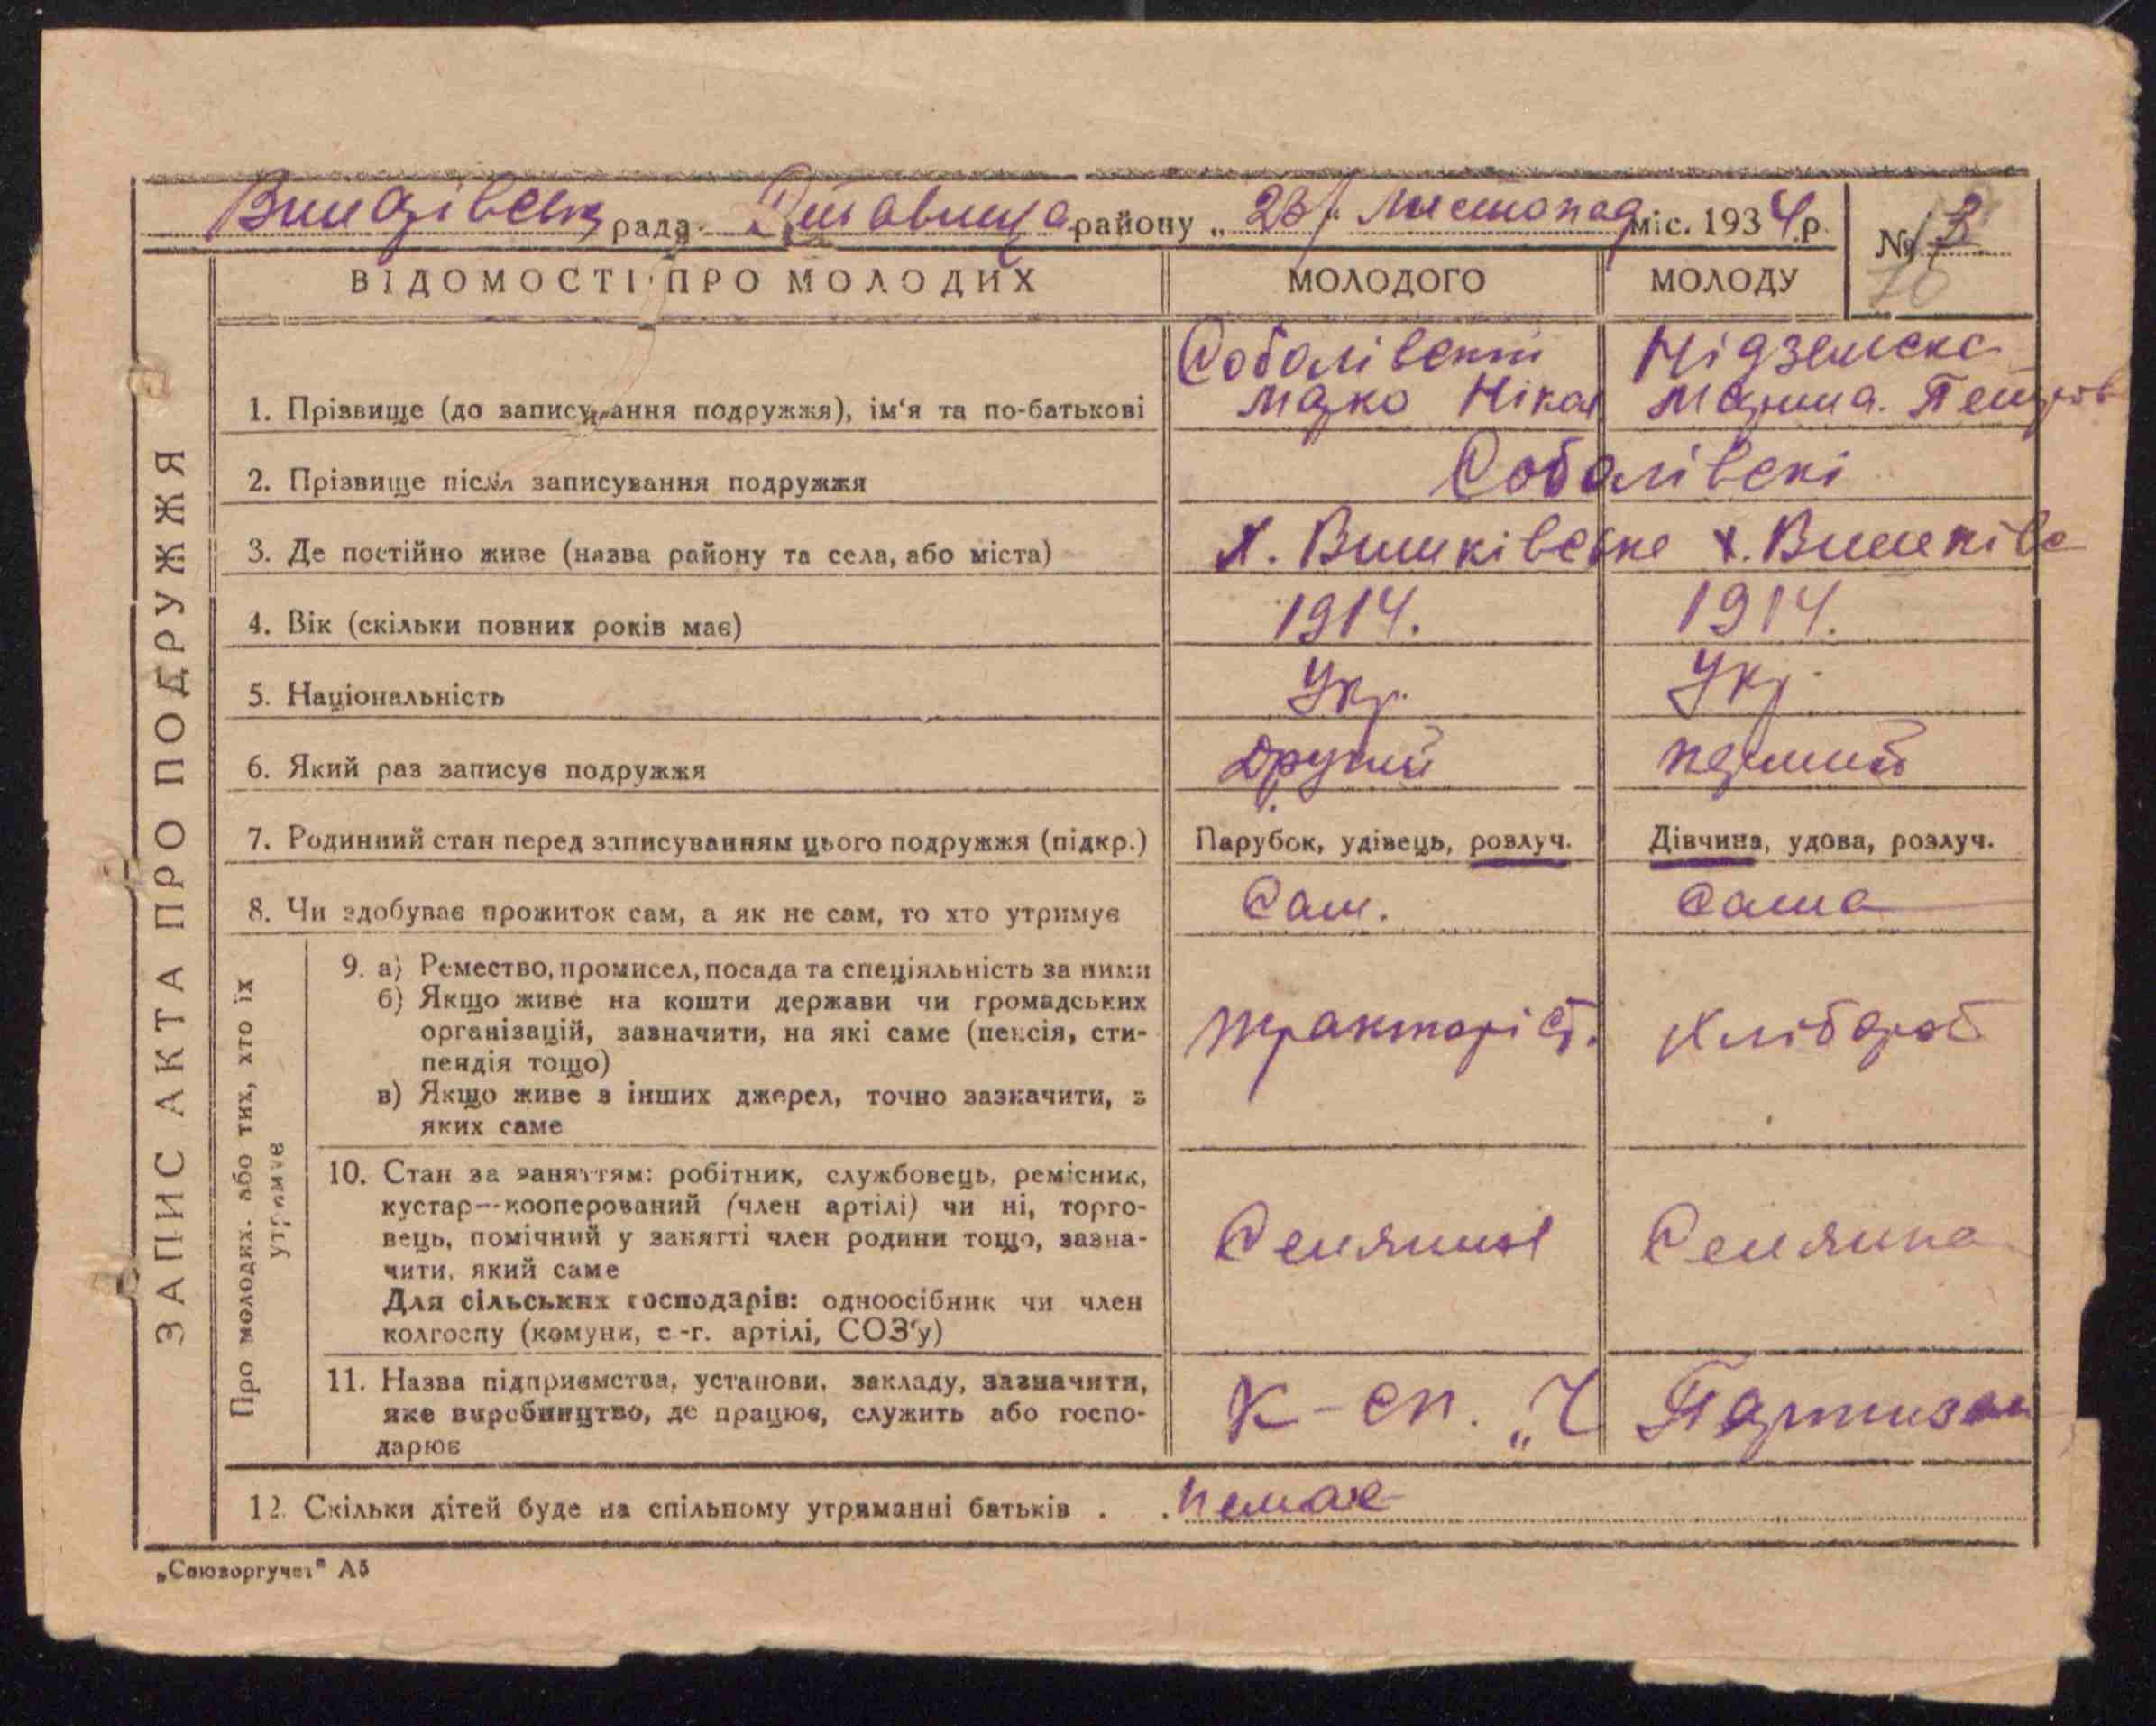 рада району „ 23 " Листопад міс. 1934 р. № 13
ВІДОМОСТІ ПРО МОЛОДИХ МОЛОДОГО МОЛОДУ
ЗАПИС АКТА ПРО ПОДРУЖЖЯ
1. Прізвище (до записування подружжя), ім'я та по-батькові Марко Нікол Марина. Петров
2. Прізвище після записування подружжя Соболівскі
3. Де постійно живе (назва району та села, або міста) х. Вишківське х. Вишківс
4. Вік (скільки повних років має) 1914. 1914.
5. Національність Укр. Укр.
6. Який раз записує подружжя другий перший
7. Родинний стан перед записуванням цього подружжя (підкр.) Парубок, удівець, розлуч. Дівчина, удова, розлуч.
8. Чи здобуває прожиток сам, а як не сам, то хто утримує Сам. Сама
Про молодих або тих, хто їх
утримує
9. а) Ремество, промисел, посада та спеціяльність за ними
б) Якщо живе на кошти держави чи громадських
організацій, зазначити, на які саме (пенсія, сти-
пендія тощо)
в) Якщо живе з інших джерел, точно зазначити, з
яких саме
тракторіст. Хлібороб
10. Стан за заняттям: робітник, службовець, ремісник,
кустар—кооперований (член артілі) чи ні, торго-
вець, помічний у занятті член родини тощо, зазна-
чити, який саме
Для сільських господарів: одноосібник чи член
колгоспу (комуни, с.-г. артілі, СОЗ'у)
Селянин Селянка
11. Назва підприємства, установи, закладу, зазначити,
яке виробництво, де працює, служить або госпо-
дарює
К-сп. „Ч Партизан
12. Скільки дітей буде на спільному утриманні батьків . . немає
„Союзоргучет" А5